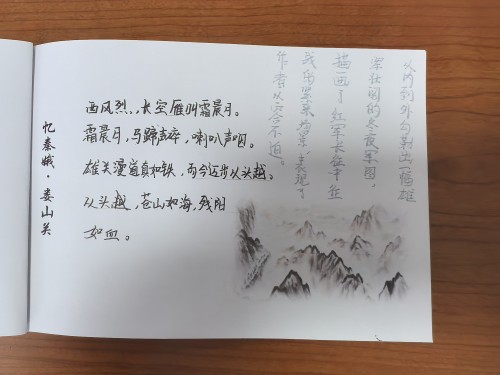 忆秦娥·娄山关
西风烈，长空雁叫霜晨月。
霜晨月，马蹄声碎，喇叭声咽。
雄关漫道真如铁，而今迈步从头越。
从头越，苍山如海，残阳
如血。
从内到外勾勒出一幅雄
壮阔的冬夜军图，
描画了红军长征中征
战的景，表现了
作者从容不迫。